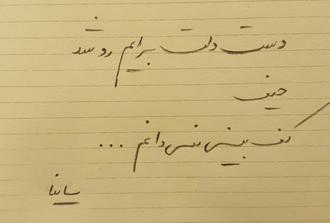 دست دلت برایم رو شد
حیف
کف بینی نمی دانم ...
ساینا